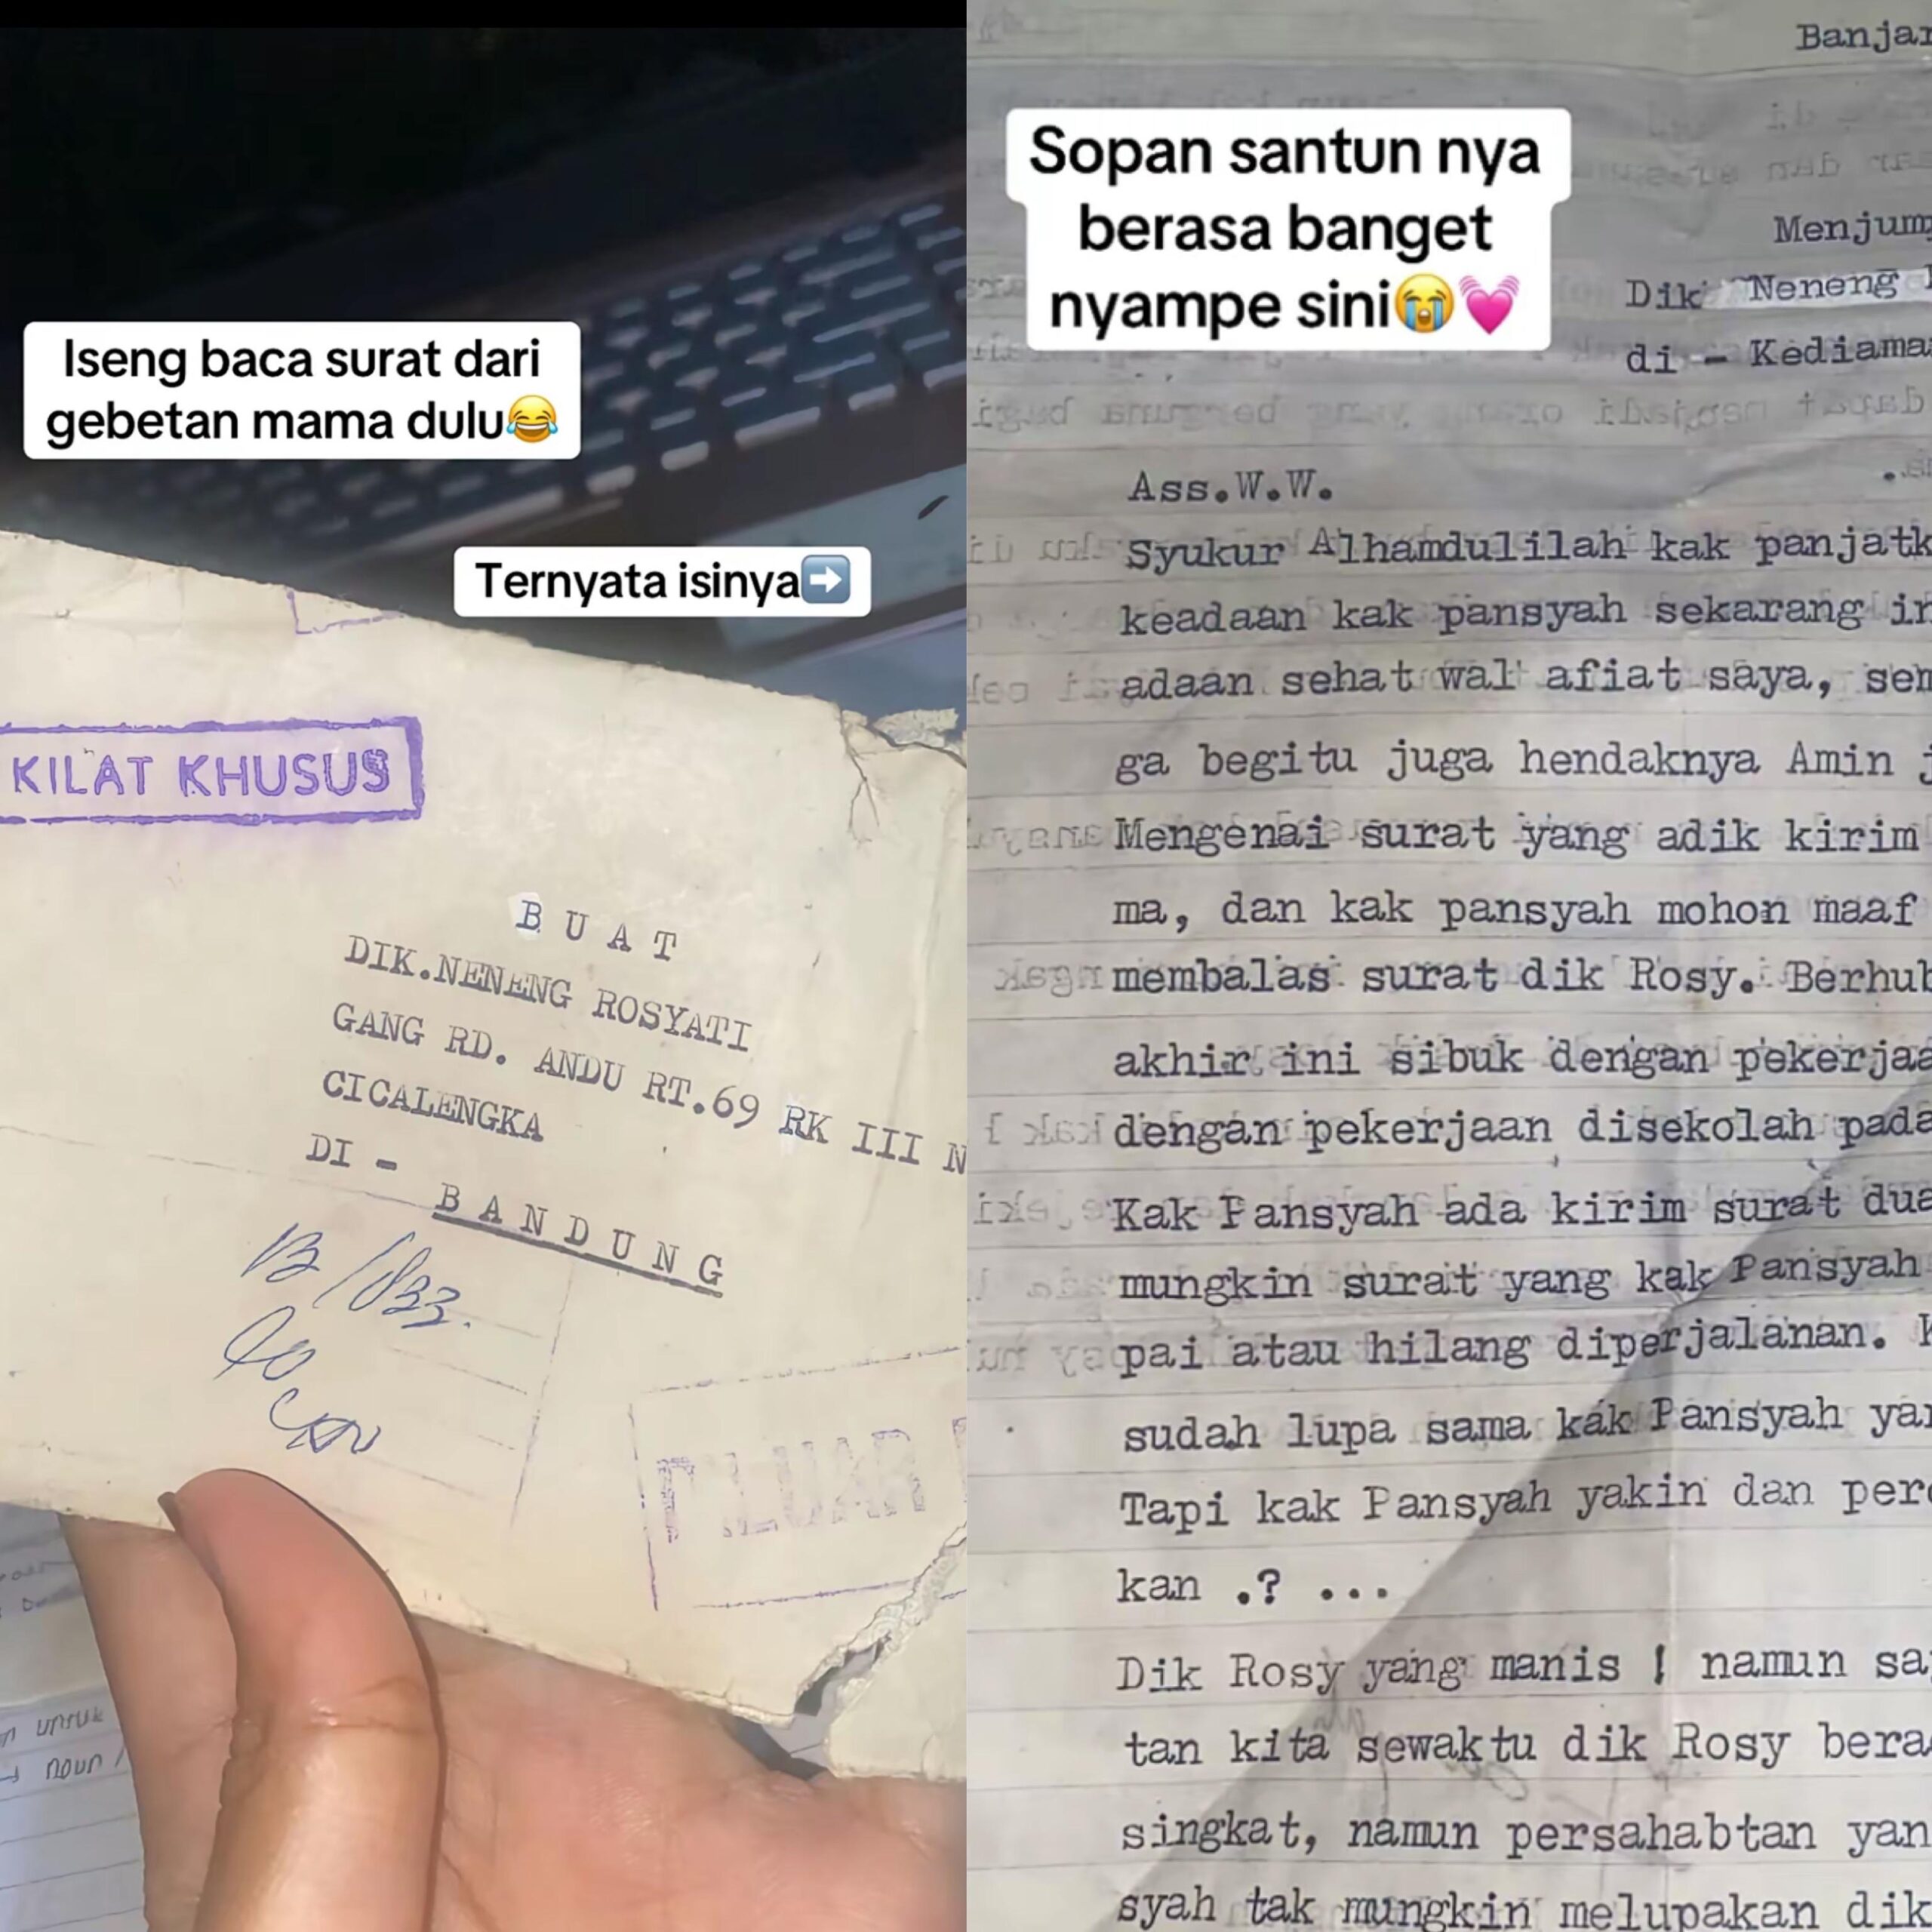 Iseng baca surat dari
gebetan mama dulu😂
Ternyata isinya➡️
KILAT KHUSUS
B U A T
DIK.NENENG ROSYATI
GANG RD. ANDU RT.69 RK III N
CICALENGKA
DI -
B A N D U N G
Sopan santun nya
berasa banget
nyampe sini😭💓
Banjar
Menjum
Dik Neneng
di - Kediama
Ass.W.W.
Syukur Alhamdulilah kak panjatk
keadaan kak pansyah sekarang in
adaan sehat wal' afiat saya, sem
ga begitu juga hendaknya Amin
Mengenai surat yang adik kirim
ma, dan kak pansyah mohon maaf
membalas surat dik Rosy. Berhub
akhir ini sibuk dengan pekerjaa
dengan pekerjaan disekolah pada
Kak Pansyah ada kirim surat dua
mungkin surat yang kak Pansyah
pai atau hilang diperjalanan. K
sudah lupa sama kak Pansyah yan
Tapi kak Pansyah yakin dan perc
kan .? ...
Dik Rosy yang manis ! namun sa
tan kita sewaktu dik Rosy bera
singkat, namun persahabtan yan
syah tak mungkin melupakan dik